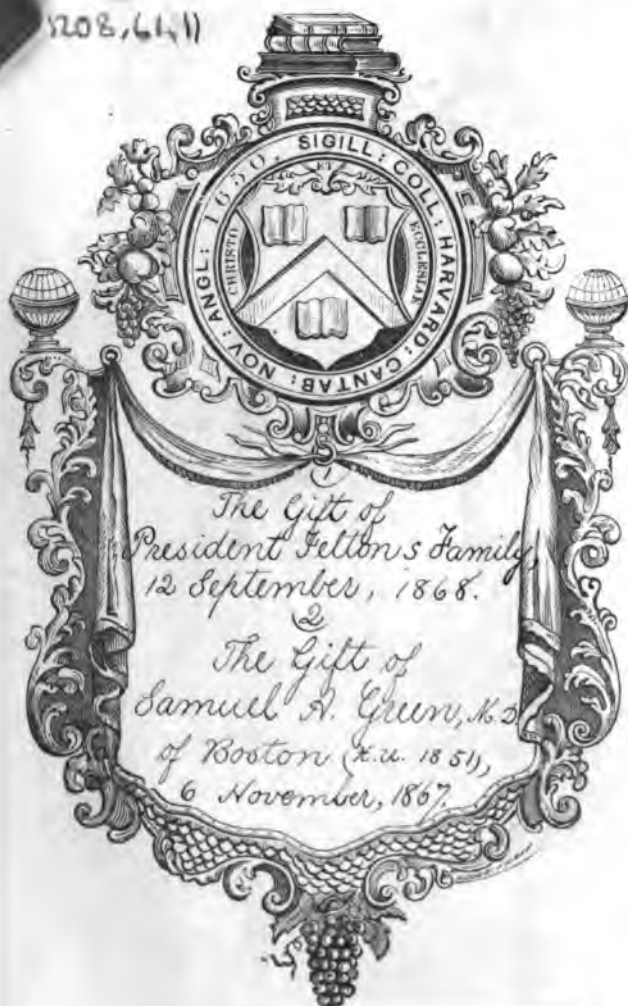 1208,61,1)
SIGILL: COLL: HARVARD: CANTAB: NOV: ANGL: 1650.
CHRISTO
ET
ECCLESIAE
1
The Gift of
President Feltons Family,
12 September, 1868.
2
The Gift of
Samuel A. Green, M.D.
of Boston (H.U. 1851),
6 November, 1867.